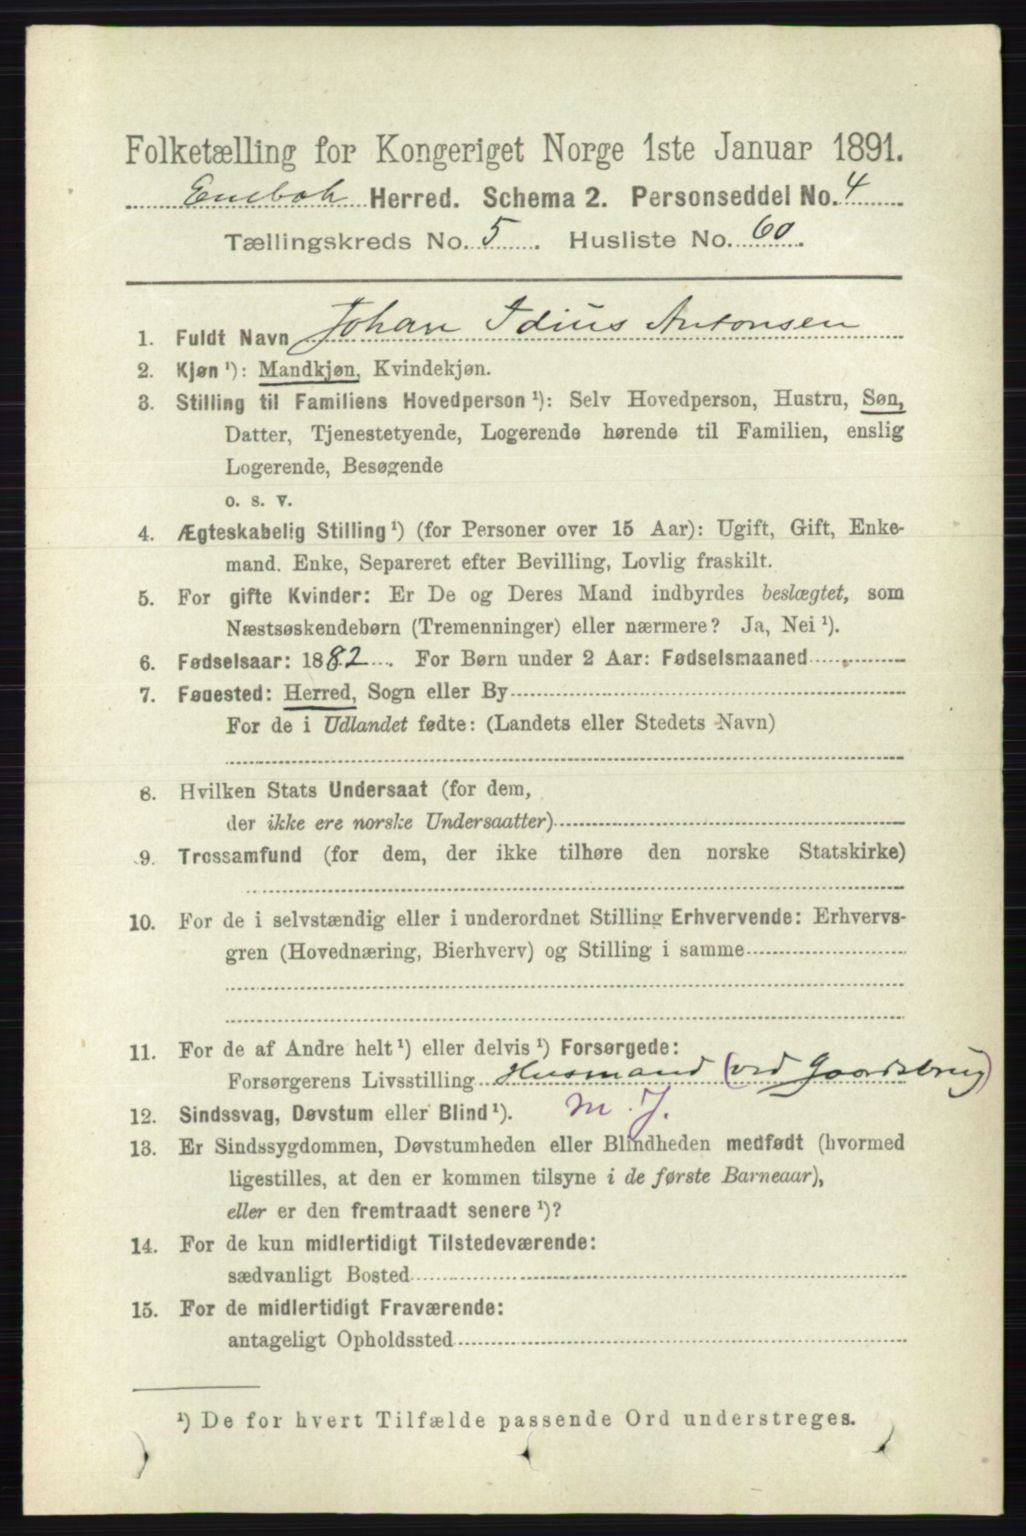 Folketælling for Kongeriget Norge 1ste Januar 1891.
Enebak Herred. Schema 2. Personseddel No. 4
Tællingskreds No. 5. Husliste No. 60.
1. Fuldt Navn Johan Idius Antonsen
2. Kjøn ¹): Mandkjøn, Kvindekjøn.
3. Stilling til Familiens Hovedperson ¹): Selv Hovedperson, Hustru, Søn,
Datter, Tjenestetyende, Logerende hørende til Familien, enslig
Logerende, Besøgende
o. s. v.
4. Ægteskabelig Stilling ¹) (for Personer over 15 Aar): Ugift, Gift, Enke-
mand. Enke, Separeret efter Bevilling, Lovlig fraskilt.
5. For gifte Kvinder: Er De og Deres Mand indbyrdes beslægtet, som
Næstsøskendebørn (Tremenninger) eller nærmere? Ja, Nei ¹).
6. Fødselsaar: 1882. For Børn under 2 Aar: Fødselsmaaned
7. Føaested: Herred, Sogn eller By
For de i Udlandet fødte: (Landets eller Stedets Navn)
8. Hvilken Stats Undersaat (for dem,
der ikke ere norske Undersaatter)
9. Trossamfund (for dem, der ikke tilhøre den norske Statskirke)
10. For de i selvstændig eller i underordnet Stilling Erhvervende: Erhvervs-
gren (Hovednæring, Bierhverv) og Stilling i samme
11. For de af Andre helt ¹) eller delvis ¹) Forsørgede:
Forsørgerens Livsstilling Husmand (ved Gaardsbrug)
12. Sindssvag, Døvstum eller Blind ¹). m. J.
13. Er Sindssygdommen, Døvstumheden eller Blindheden medfødt (hvormed
ligestilles, at den er kommen tilsyne i de første Barneaar),
eller er den fremtraadt senere ¹)?
14. For de kun midlertidigt Tilstedeværende:
sædvanligt Bosted
15. For de midlertidigt Fraværende:
antageligt Opholdssted
¹) De for hvert Tilfælde passende Ord understreges.